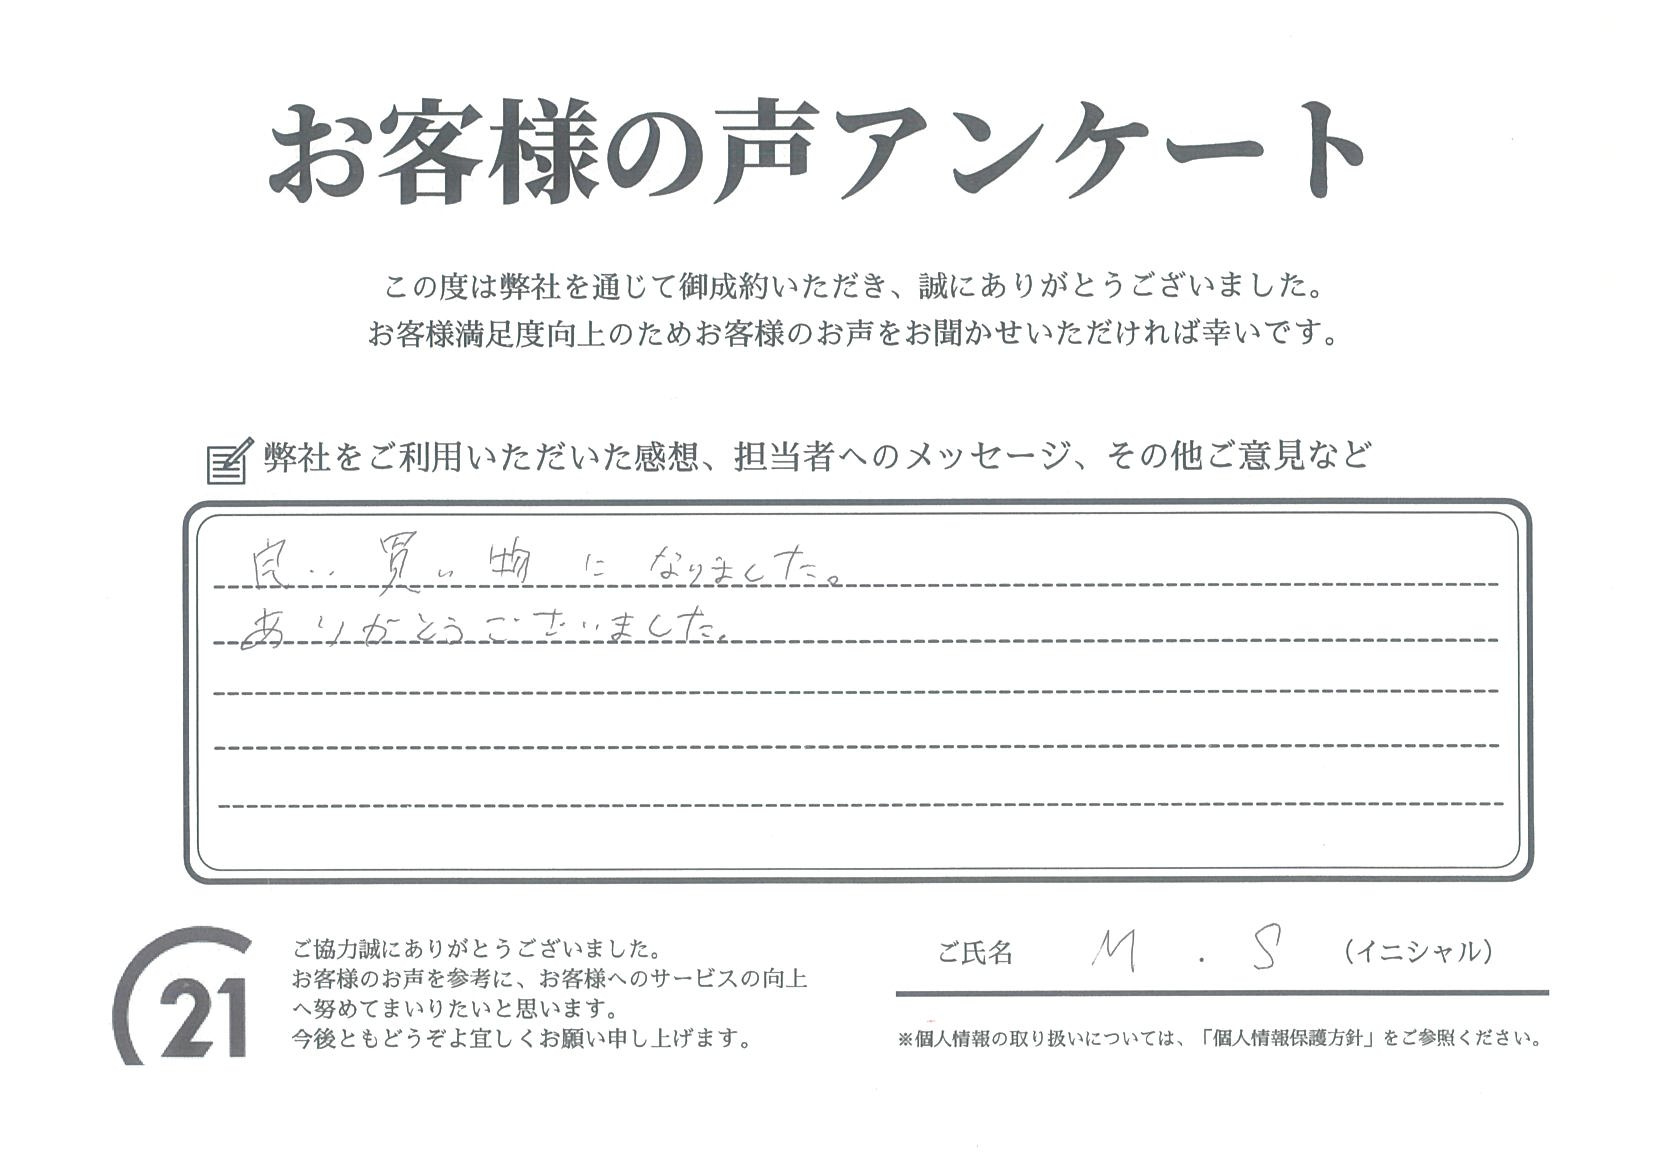 お客様の声アンケート
この度は弊社を通じて御成約いただき、誠にありがとうございました。
お客様満足度向上のためお客様のお声をお聞かせいただければ幸いです。
弊社をご利用いただいた感想、担当者へのメッセージ、その他ご意見など
良い買い物になりました。
ありがとうございました。
C21
ご協力誠にありがとうございました。
お客様のお声を参考に、お客様へのサービスの向上
へ努めてまいりたいと思います。
今後ともどうぞよ宜しくお願い申し上げます。
ご氏名 M . S （イニシャル）
※個人情報の取り扱いについては、「個人情報保護方針」をご参照ください。